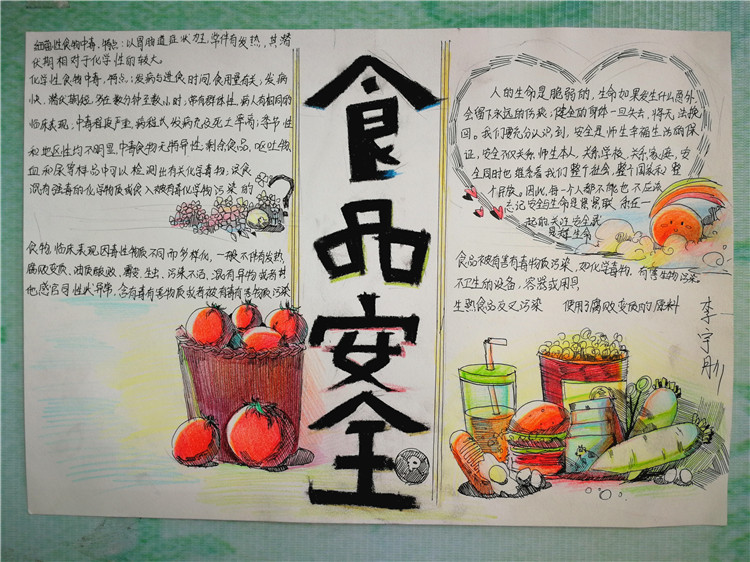 细菌性食物中毒.特点:以胃肠道症状为主,常伴有发热,其潜
伏期相对于化学性的较大。
化学性食物中毒.特点:发病与进食时间.食用量有关,发病
快.潜伏期短.多在数分钟至数小时,常有群体性.病人有相同的
临床表现.中毒程度严重.病程长.发病危及死亡率高;季节性
和地区性均不明显.中毒食物无特异性.剩余食品.呕吐物.
血和尿等样品中可以检测出有关化学毒物;误食
混有强毒的化学物质或食入被有毒化学物污染的
食物.临床表现因毒性物质不同而多样化,一般不伴有发热.
腐败变质.油质酸败.霉变.生虫.污染不洁.混有异物或者其
他感官同性状异常.含有毒有害物质或者被有毒有害物质污染
食品安全
人的生命是脆弱的,生命如果发生什么意外
会留下永远的伤痕,健全的身体一旦失去,将无法换
回。我们要充分认识到,安全是师生幸福生活的保
证,安全不仅关系师生本人,关系学校.关系家庭,安
全同时也维系着我们整个社会,整个国家和整
个民族。因此,每一个人都不能也不应该
忘记安全与生命是紧紧联系在一
起的关注安全就
是关注生命
食品被有害有毒物质污染,如化学毒物,有害生物污染.
不卫生的设备,容器或用具
生熟食品交叉污染 使用了腐败变质的原料
李宇彤